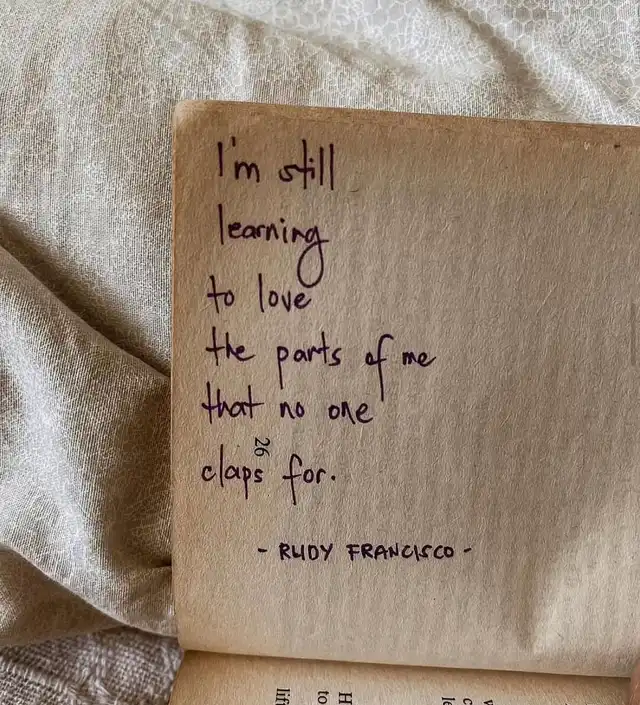 I'm still
learning
to love
the parts of me
that no one
26
claps for.
- RUDY FRANCISCO -